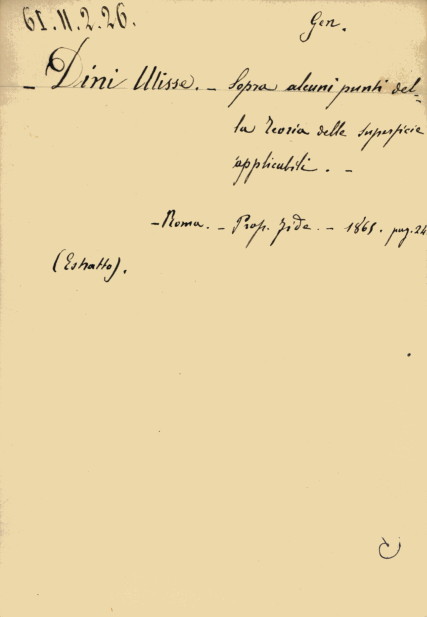 61.II.2.26.
Gen.
- Dini Ulisse. - Sopra alcuni punti del=
la Teoria delle superficie
applicabili. -
- Roma. - Prop. Fide. - 1865. pag. 24
(Estratto).